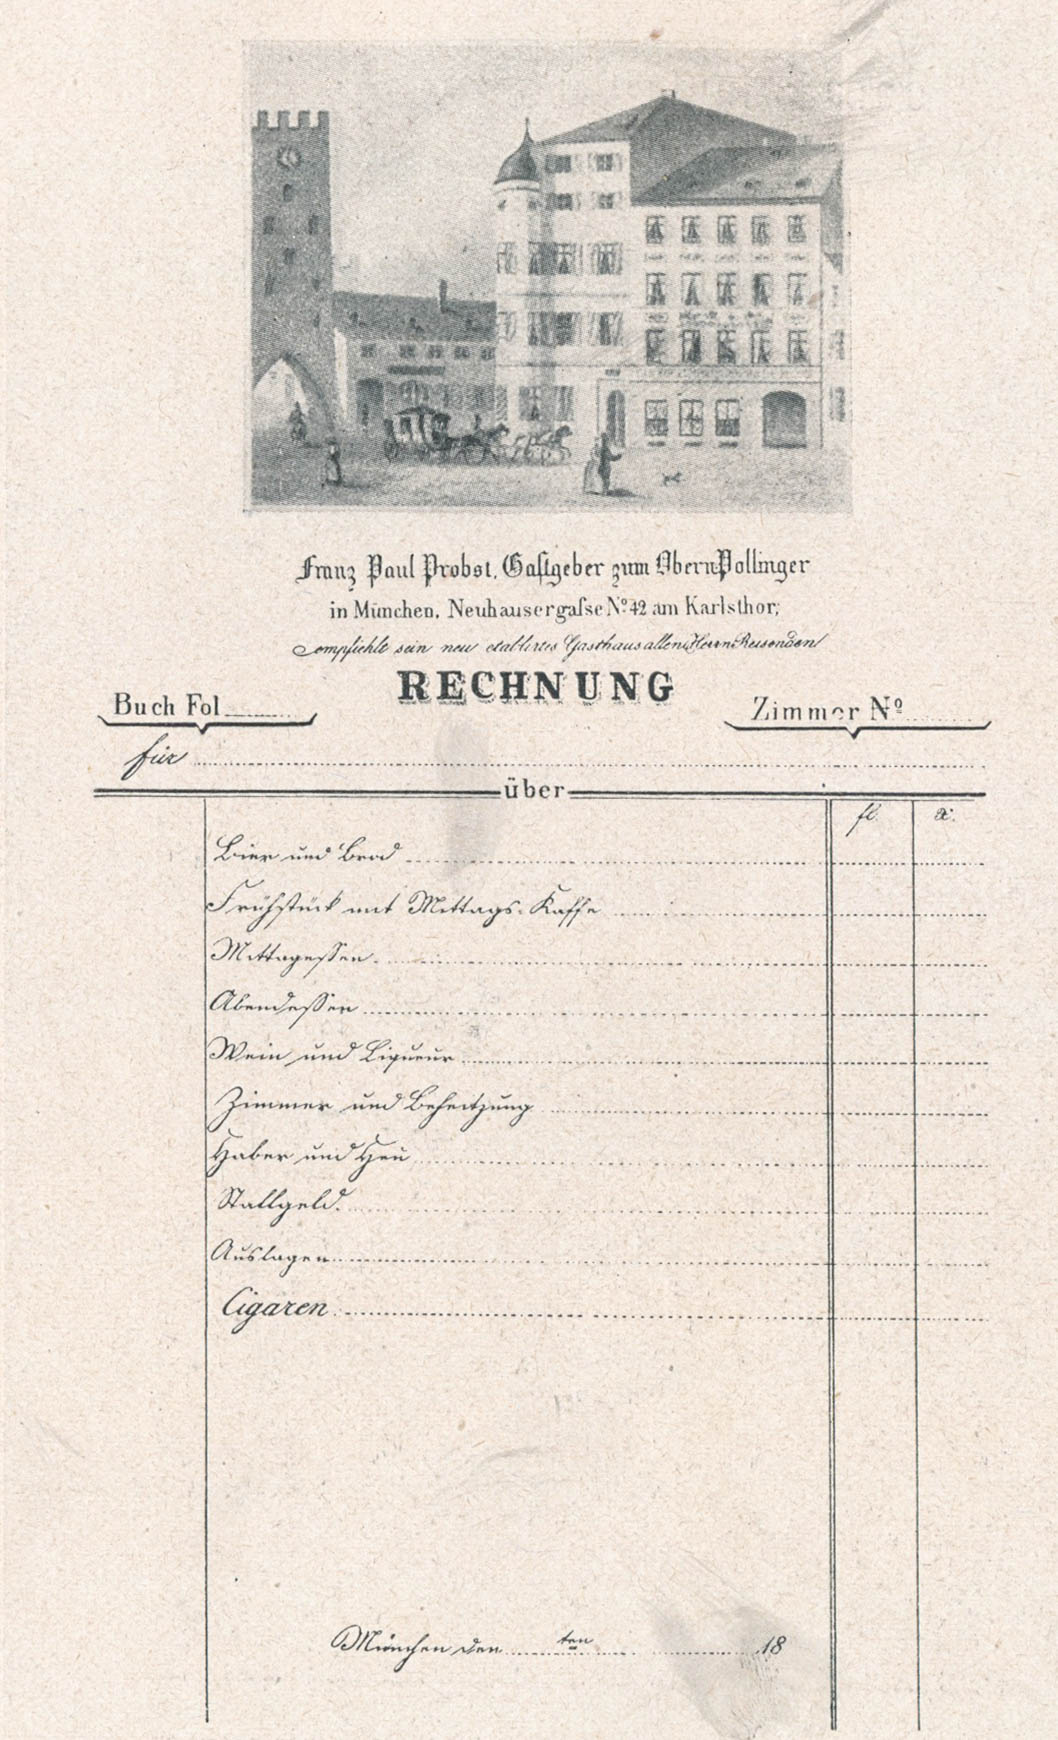 Franz Paul Probst, Gaſtgeber zum Obern Pollinger
in München, Neuhausergaſse No. 42 am Karlsthor,
empfiehlt sein neu etablirtes Gasthaus allen Herrn Reisenden
RECHNUNG
Buch Fol
Zimmer No
für
über
fl. x.
Bier und Brod
Frühstück mit Mittags-Kaffe
Mittagessen
Abendessen
Wein und Liqueur
Zimmer und Beheitzung
Haber und Heu
Stallgeld.
Auslagen
Cigaren
München den ten 18